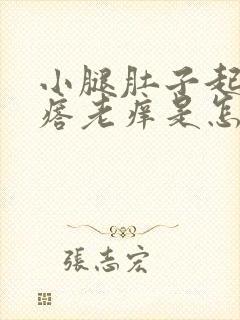 小腿肚子起
痞老痒是怎
張志宏